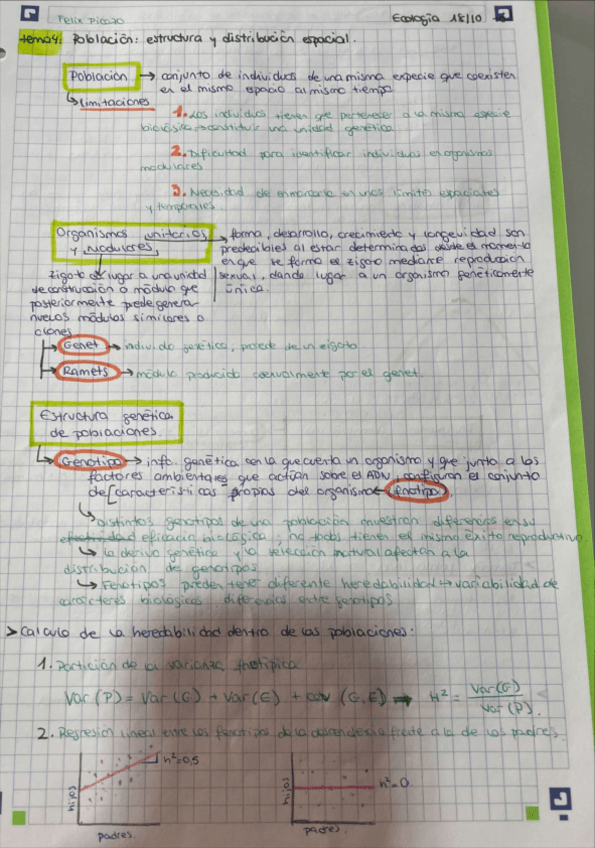 Felix Picazo
Ecología 18/10
tema4: Población: estructura y distribución espacial.
Población → conjunto de individuos de una misma especie que coexisten
en el mismo espacio al mismo tiempo
↳ limitaciones
1. Los individuos tienen que pertenecer a la misma especie
biológica → constituir una unidad genética
2. Dificultad para identificar individuos en organismos
modulares
3. Necesidad de enmarcarla en unos límites espaciales
y temporales
Organismos unitarios → forma, desarrollo, crecimiento y longevidad son
y modulares predecibles al estar determinados desde el momento
en que se forma el zigoto mediante reproducción
zigoto da lugar a una unidad sexual, dando lugar a un organismo genéticamente
de construcción o módulo que única.
posteriormente puede generar
nuevos módulos similares o
clones
→ Genet → individuo genético, procede de un zigoto
→ Ramets → módulo producido asexualmente por el genet.
Estructura genética
de poblaciones
↳ Genotipo → info. genética con la que cuenta un organismo y que junto a los
factores ambientales que actúan sobre el ADN, configuran el conjunto
de características propias del organismo ← Fenotipo
↳ Distintos genotipos de una población muestran diferencias en su
efectividad eficacia biológica; no todos tienen el mismo éxito reproductivo
↳ la deriva genética y la selección natural afectan a la
distribución de genotipos
↳ Fenotipos pueden tener diferente heredabilidad → variabilidad de
caracteres biológicos diferencias entre genotipos
> Calculo de la heredabilidad dentro de las poblaciones:
1. Partición de la varianza fenotípica
Var (P) = Var (G) + Var (E) + cov (G, E) → H² = Var(G) / Var(P).
2. Regresión lineal entre los fenotipos de la descendencia frente a la de los padres.
h²=0,5
h²=0
hijos
hijos
padres.
padres.